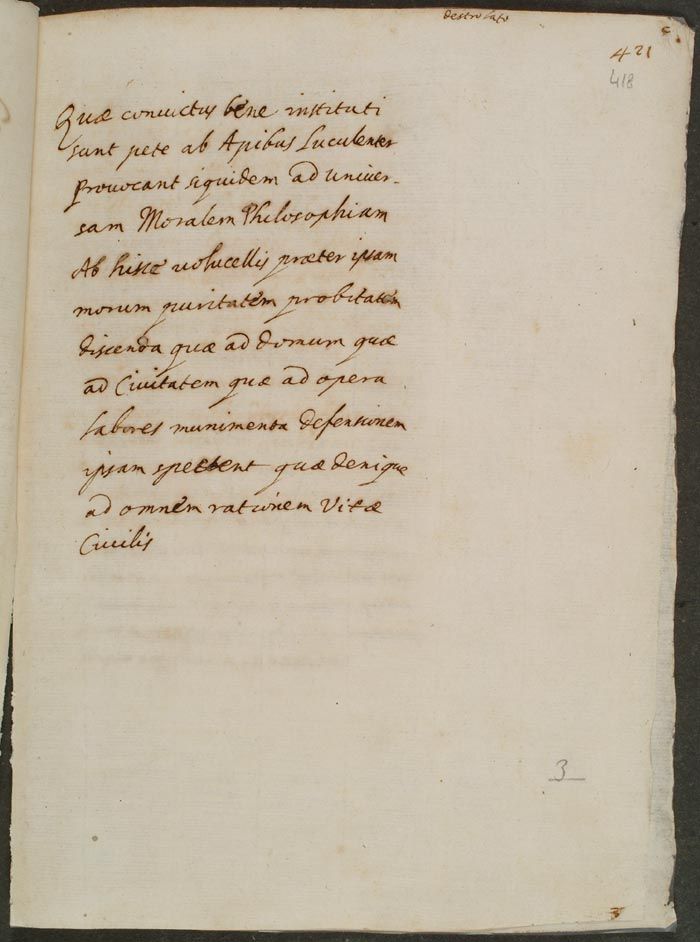 destro lato
c
421
418
Quæ convictus bene instituti
sunt pete ab Apibus Luculenter
Provocant siquidem ad univer-
sam Moralem Philosophiam
Ab hisce volucellis præter ipsam
morum puritatem probitatem
discenda quæ ad domum quæ
ad Civitatem quæ ad opera
labores munimenta defensionem
ipsam spectent quæ denique
ad omnem rationem Vitæ
Civilis
3
3